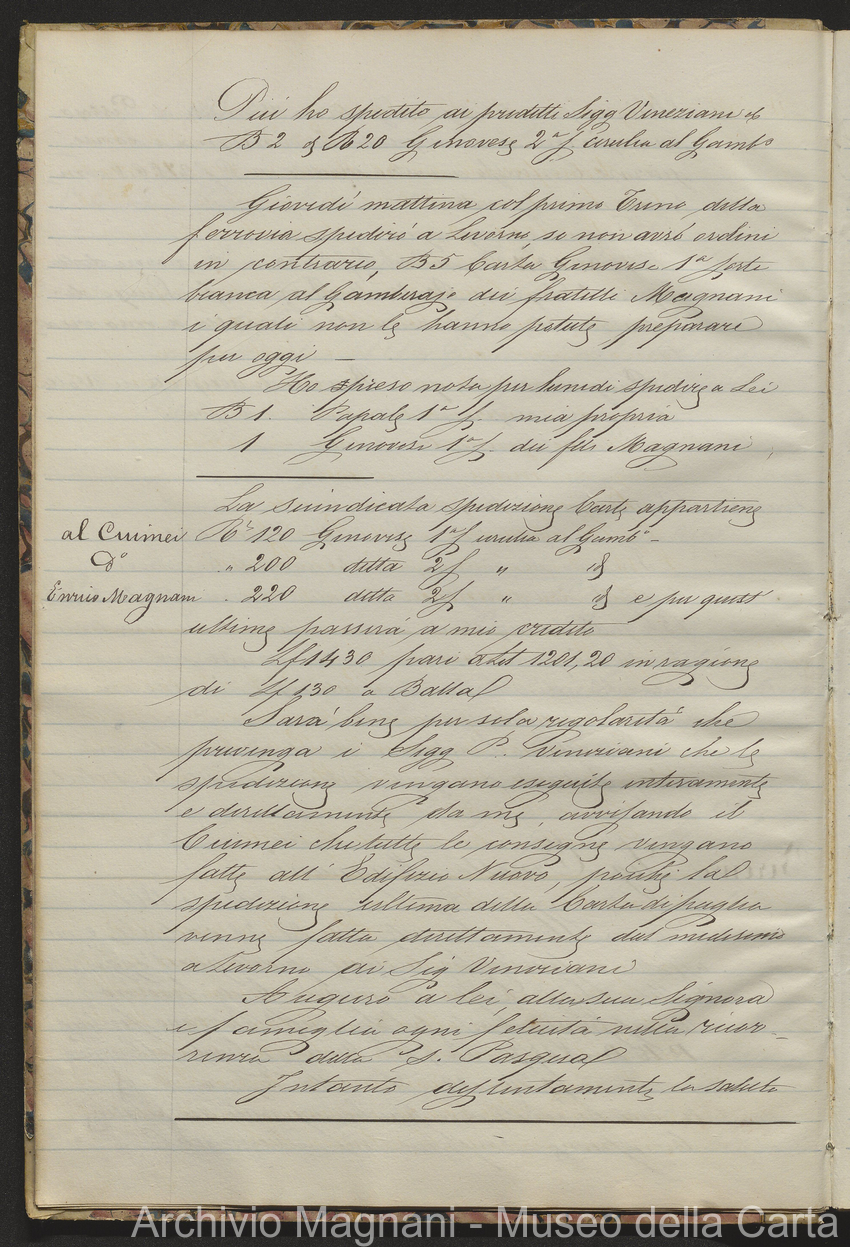 Più ho spedito ai predetti Sigg Veneziani
B 2 R 20 Genovese 2ª f. cerulea al Gambº
Giovedì mattina col primo Treno della
ferrovia spedirò a Livorno, se non avrò ordini
in contrario, B 5 Carta Genovese 1ª forte
bianca al Gamberajo dei fratelli Magnani
i quali non le hanno potute preparare
per oggi —
Ho preso nota per lunedì spedire a Lei
B 1. Papale 1ª f. mia propria
1 Genovese 1ª f. dei flli Magnani
La suindicata spedizione Carte appartiene
al Cuimei Rº 120 Genovese 1ª f cerulea al Gambº -
Dº „ 200 detta 2 f „
Enrico Magnani „ 220 detta 2 f „ e per quest'
ultime passerà a mio credito
Lf 1430 pari a Lit 1201,20 in ragione
di Lf 130 a Balla
Sarà bene per sola regolarità che
prevenga i Sigg P. Veneziani che le
spedizione vengano eseguite interamente
e direttamente da me, avvisando il
Cuimei che tutte le consegne vengano
fatte all' Edifizio Nuovo, poiché la
spedizione ultima della Carta di paglia
venne fatta direttamente dal medesimo
a Livorno ai Sig Veneziani
Auguro a lei, alla sua Signora
e famiglia ogni felicità nella ricor-
renza della S. Pasqua
Intanto distintamente la saluto
Archivio Magnani - Museo della Carta